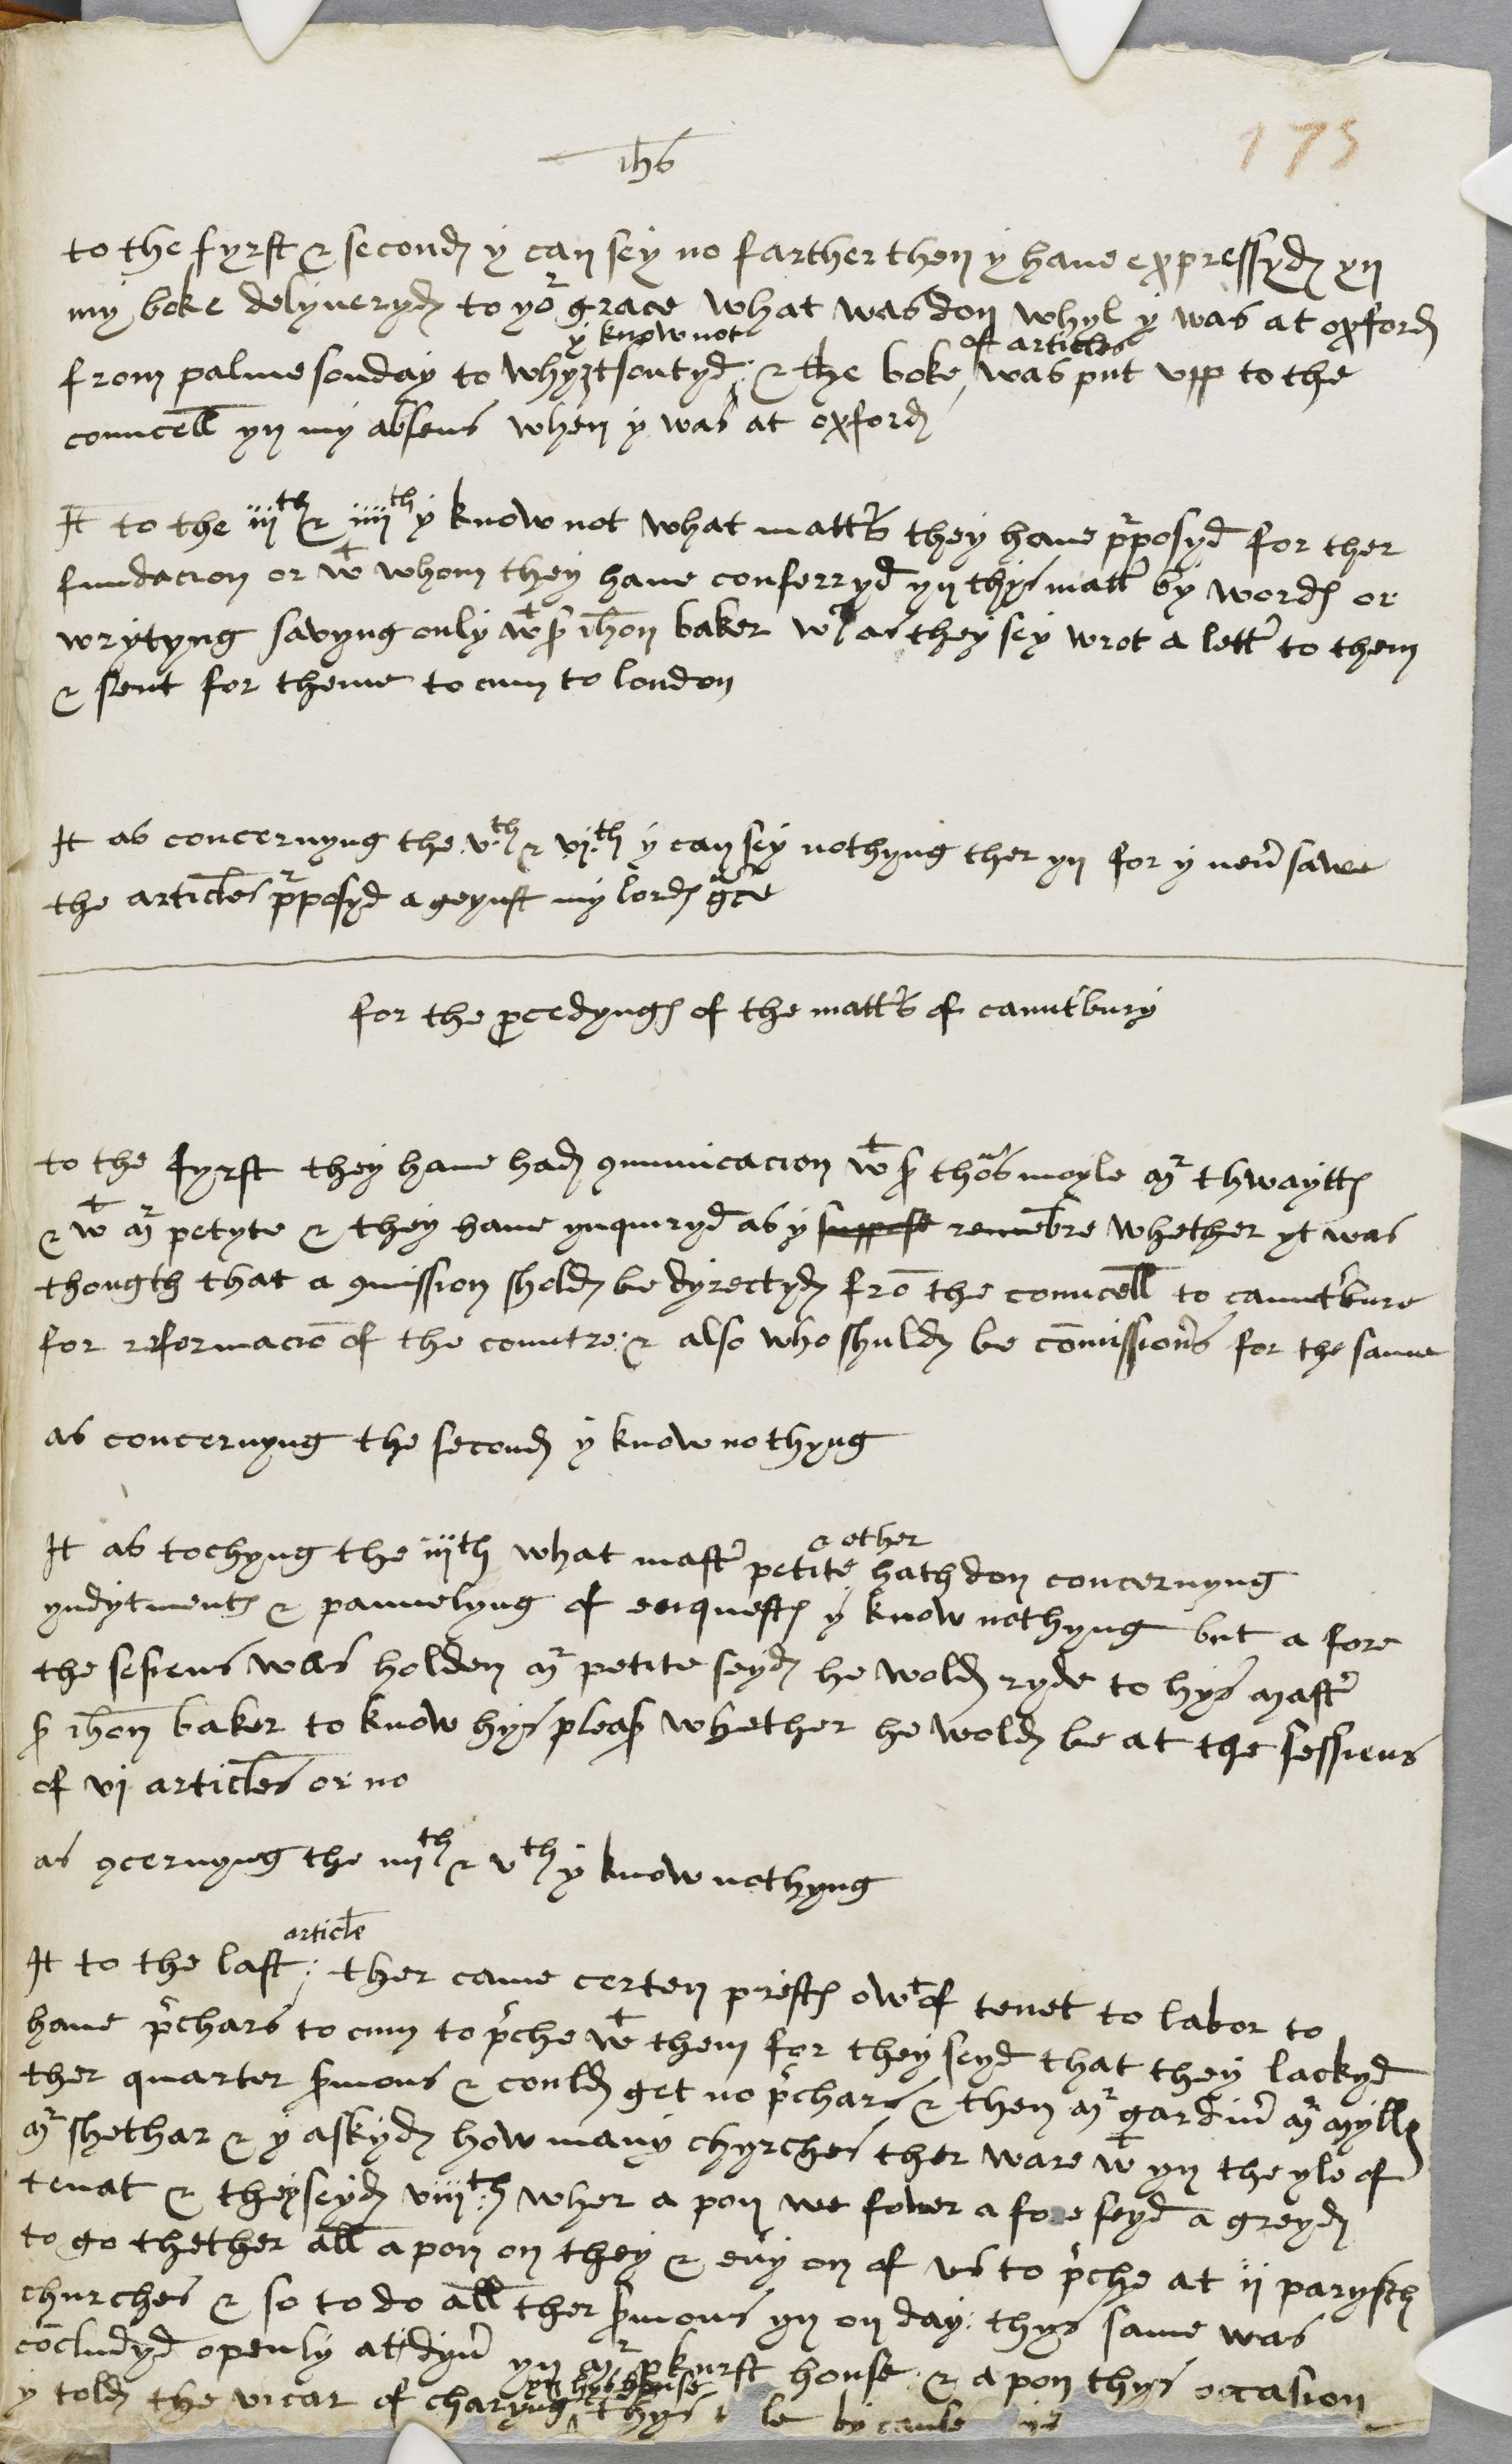 173
ihs
to the fyrst & second y can sey no farther then y haue expressyd yn
my boke delyueryd to yor grace what was don whyl y was at oxford
y know not of articles
from palme sonday to whyztsontyd : & the boke was put vpp to the
councell yn my absens when y was at oxford
It to the iijth & iiijth y know not what matters they haue prposyd for ther
fundacion or wt whom they haue conferryd yn thys matter by words or
wrytyng savyng only wt sr ihon baker wch as they sey wrot a letter to them
& sent for theme to cum to london
It as concernyng the vth & vjth y can sey nothyng ther yn for y never sawe
the articles prposyd ageynst my lords grace
for the procedyngs of the matters of cauntbury
to the fyrst they haue had comunicacion wt sr thoas moyle mr thwaytts
& wt mr petyte & they haue ynquiryd as y suppose remebre whether yt was
thougth that a comission shold be dyrectyd fro the councell to cauntbure
for reformacio of the countre : & also who shuld be comissioners for the same
as concernyng the second y know nothyng
& other
It as tochyng the iijth what master petite hath don concernyng
yndytments & pannelyng of enquests y know nothyng but a fore
the sesiens was holden mr petite seyd he wold ryde to hys master
sr ihon baker to know hys pleasr whether he wold be at the sessiens
of vj articles or no
as concernyng the iiijth & vth y know nothyng
article
It to the last : ther came certen prests owt of tenet to labor to
haue prchars to cum to prche wt them for they seyd that they lackyd
ther quarter sermons & could get no prchars & then mr gardiner mr mylls
mr shethar & y askyd how many chyrches ther ware wt yn the yle of
tenat & they seyd viijth wher a pon we fower a fore seyd a greyd
to go thether all a pon on they & euery on of vs to prche at ij parysch
churches & so to do all ther sermons yn on day : thys same was
cocludyd openly at dyner yn mr pkurst house : & a pon thys occasion
yn hys house
y told the vicar of charyng thys by cause